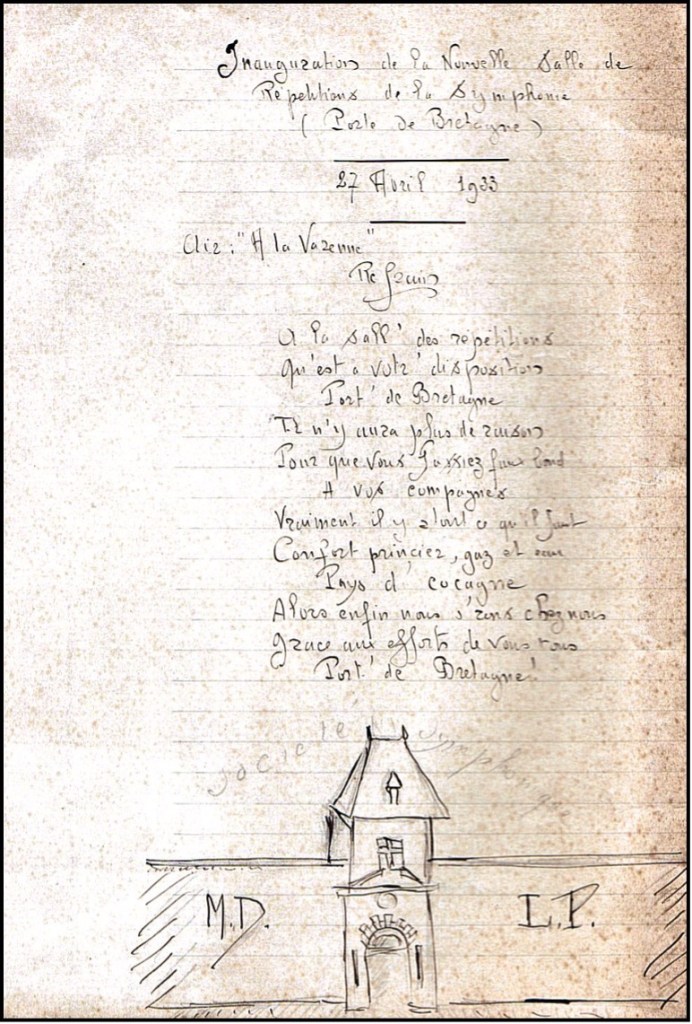 Inauguration de la Nouvelle Salle de
Répétitions de la Symphonie
( Porte de Bretagne )
27 Avril 1933
Air : "A la Varenne"
Refrain
A la sall' des répétitions
Qu'est a votr' disposition
Port' de Bretagne
Il n'y aura plus de raison
Pour que vous fassiez faux bond
A vos compagnes
Vraiment il y a tout c' qu'il faut
Confort princier, gaz et eau
Pays d' cocagne
Alors enfin nous s'rons chez nous
Grace aux efforts de vous tous
Port' de Bretagne !
Société Symphonique
M.D. L.P.